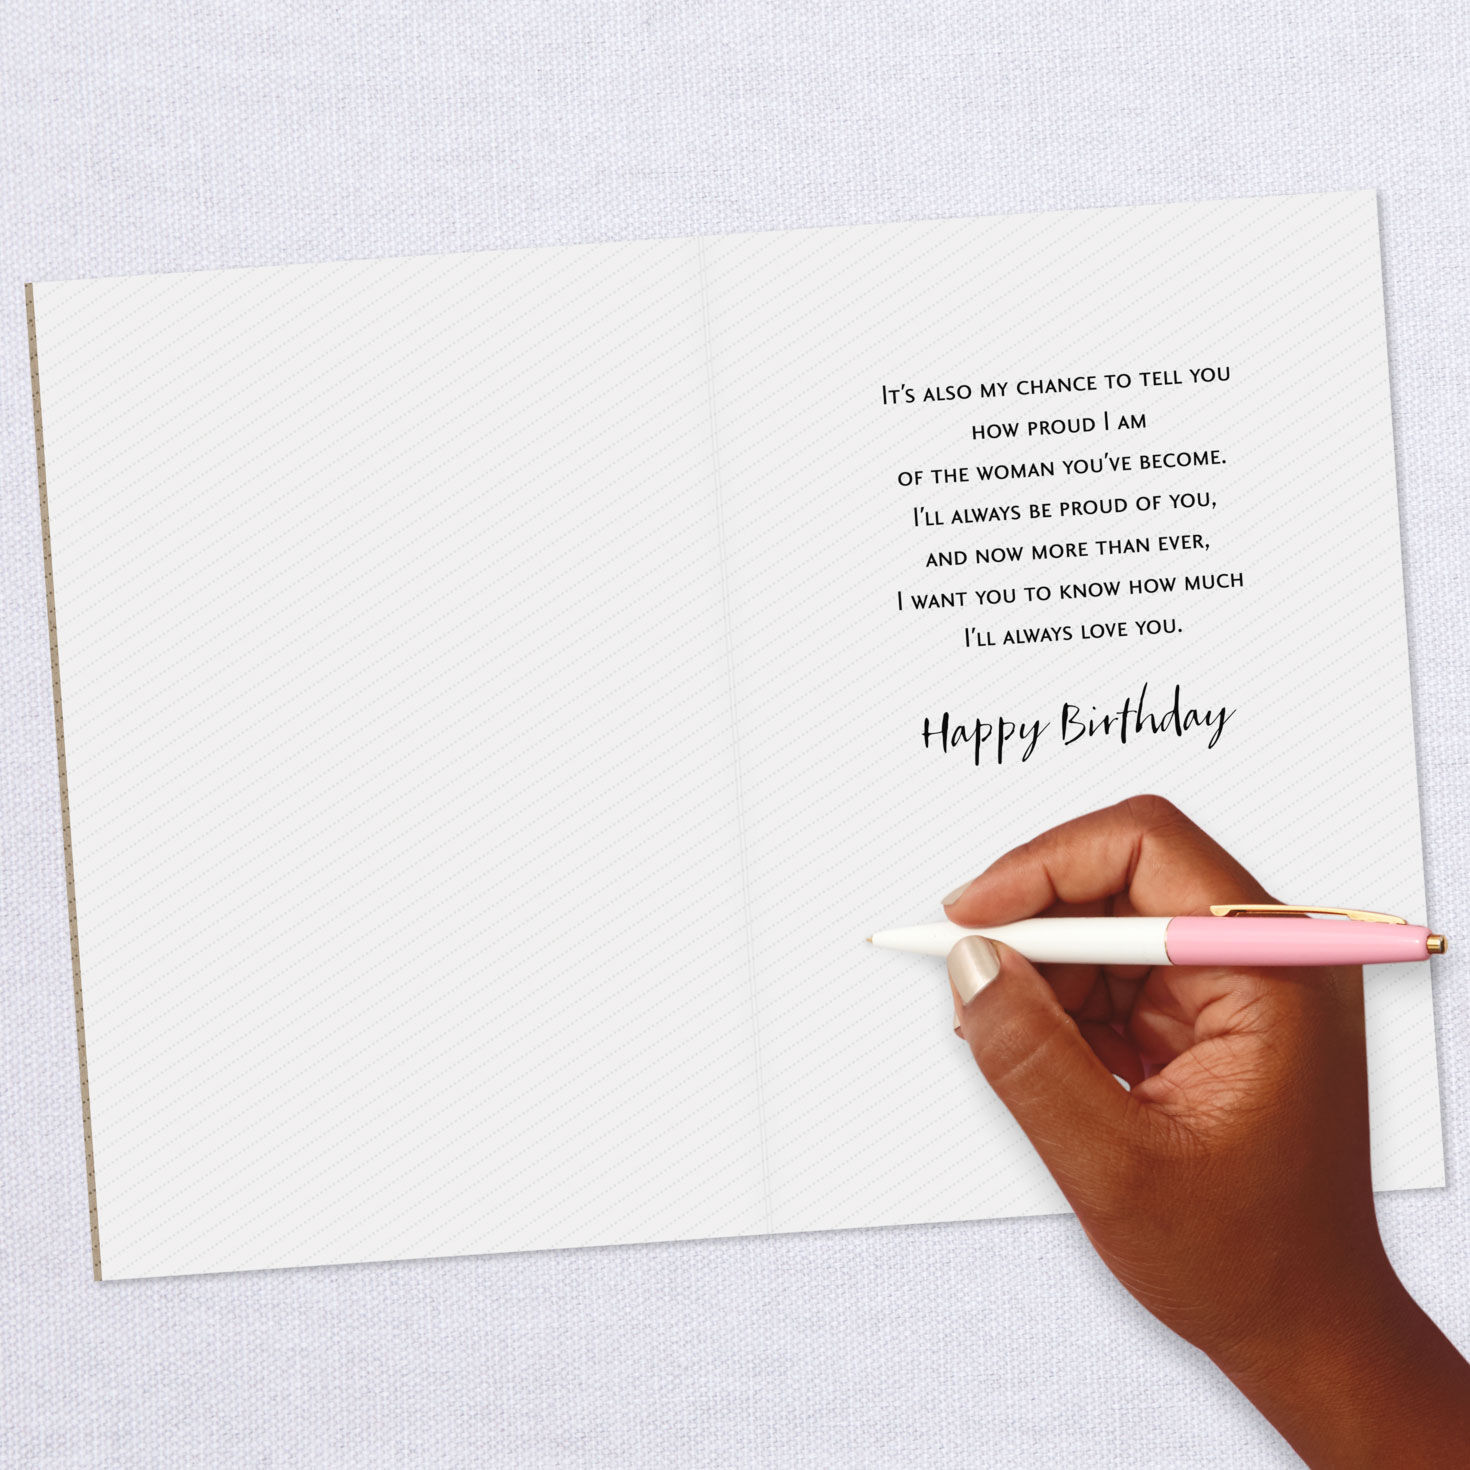 It's also my chance to tell you
how proud I am
of the woman you've become.
I'll always be proud of you,
and now more than ever,
I want you to know how much
I'll always love you.
Happy Birthday